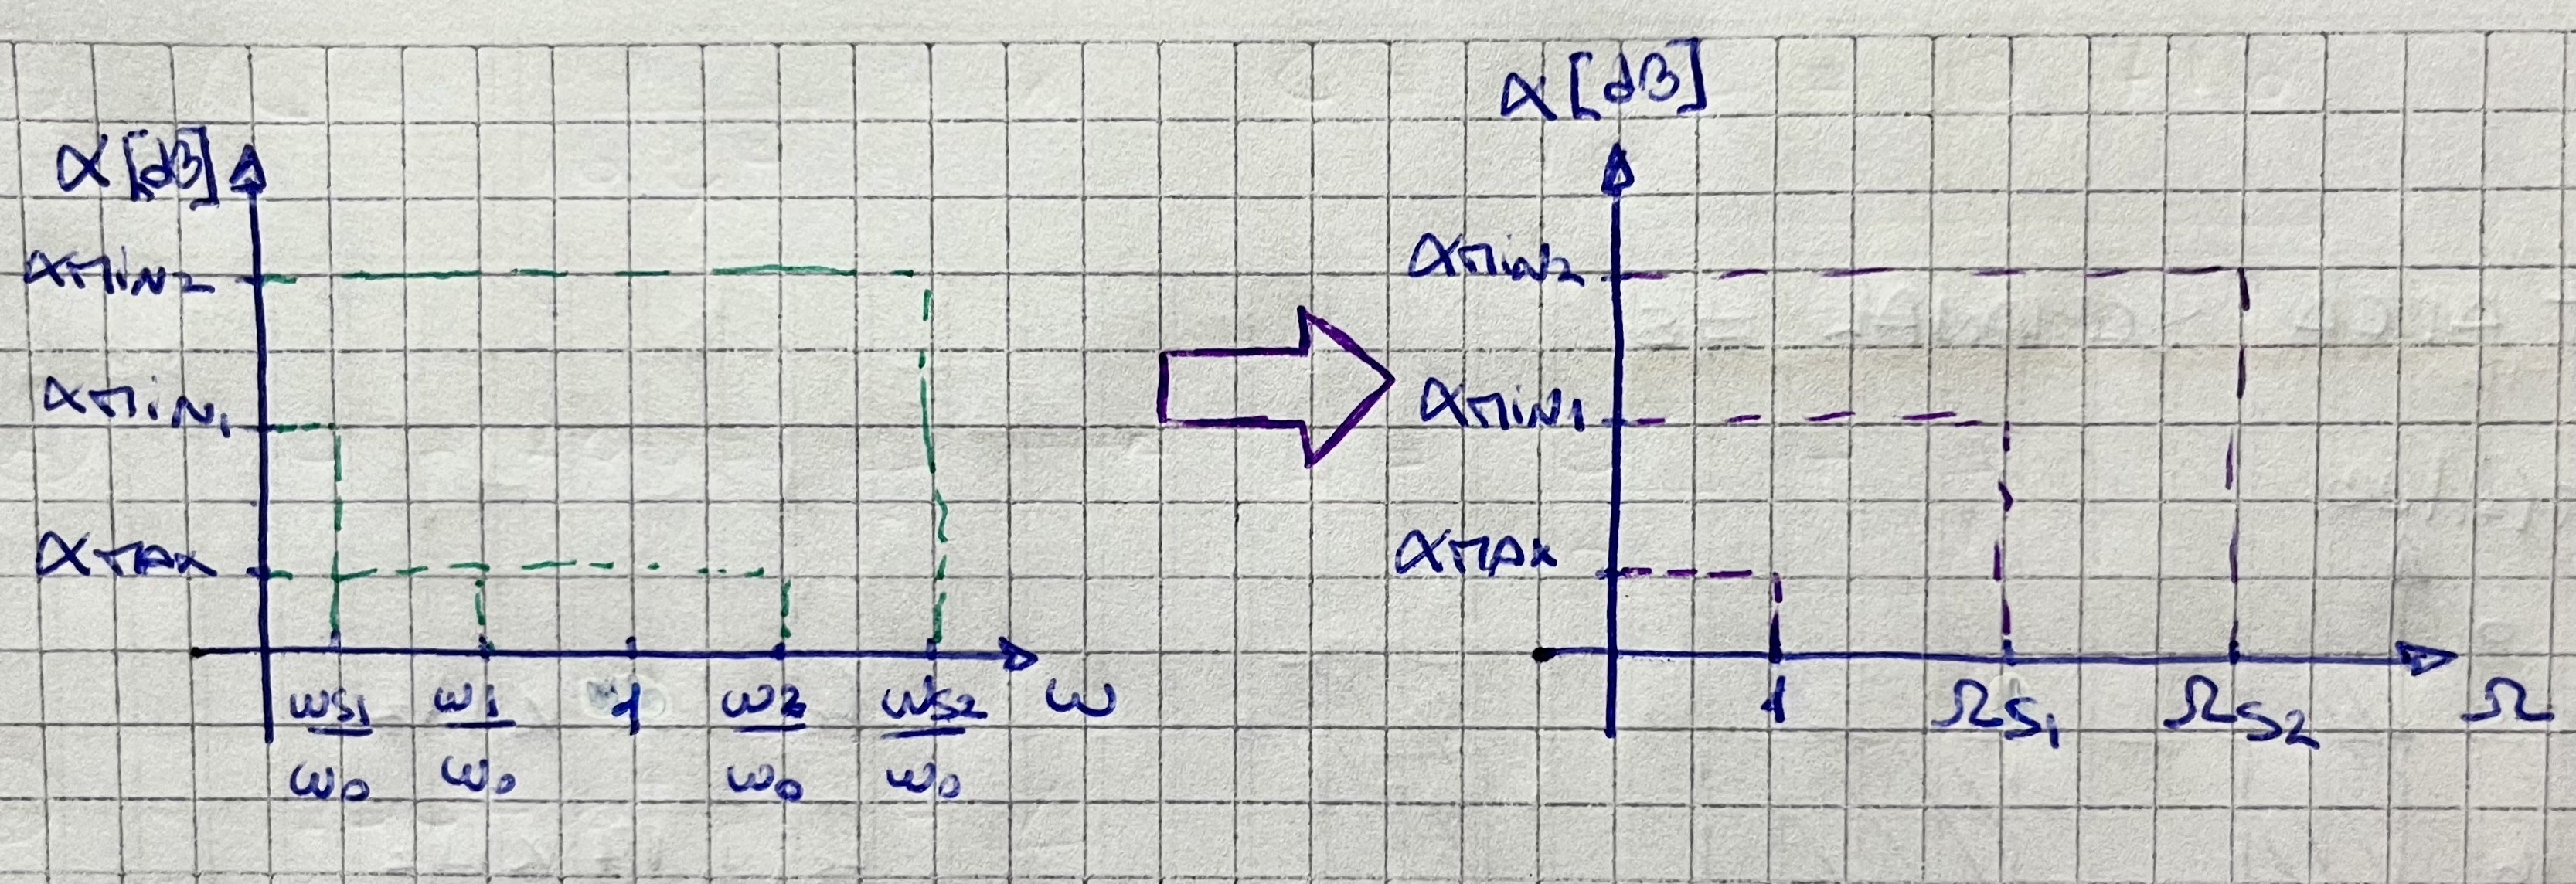 α [dB]
αMIN2
αMIN1
αMAX
ωS1/ω0 ω1/ω0 1 ω2/ω0 ωS2/ω0 ω
α [dB]
αMIN2
αMIN1
αMAX
1 ΩS1 ΩS2 Ω